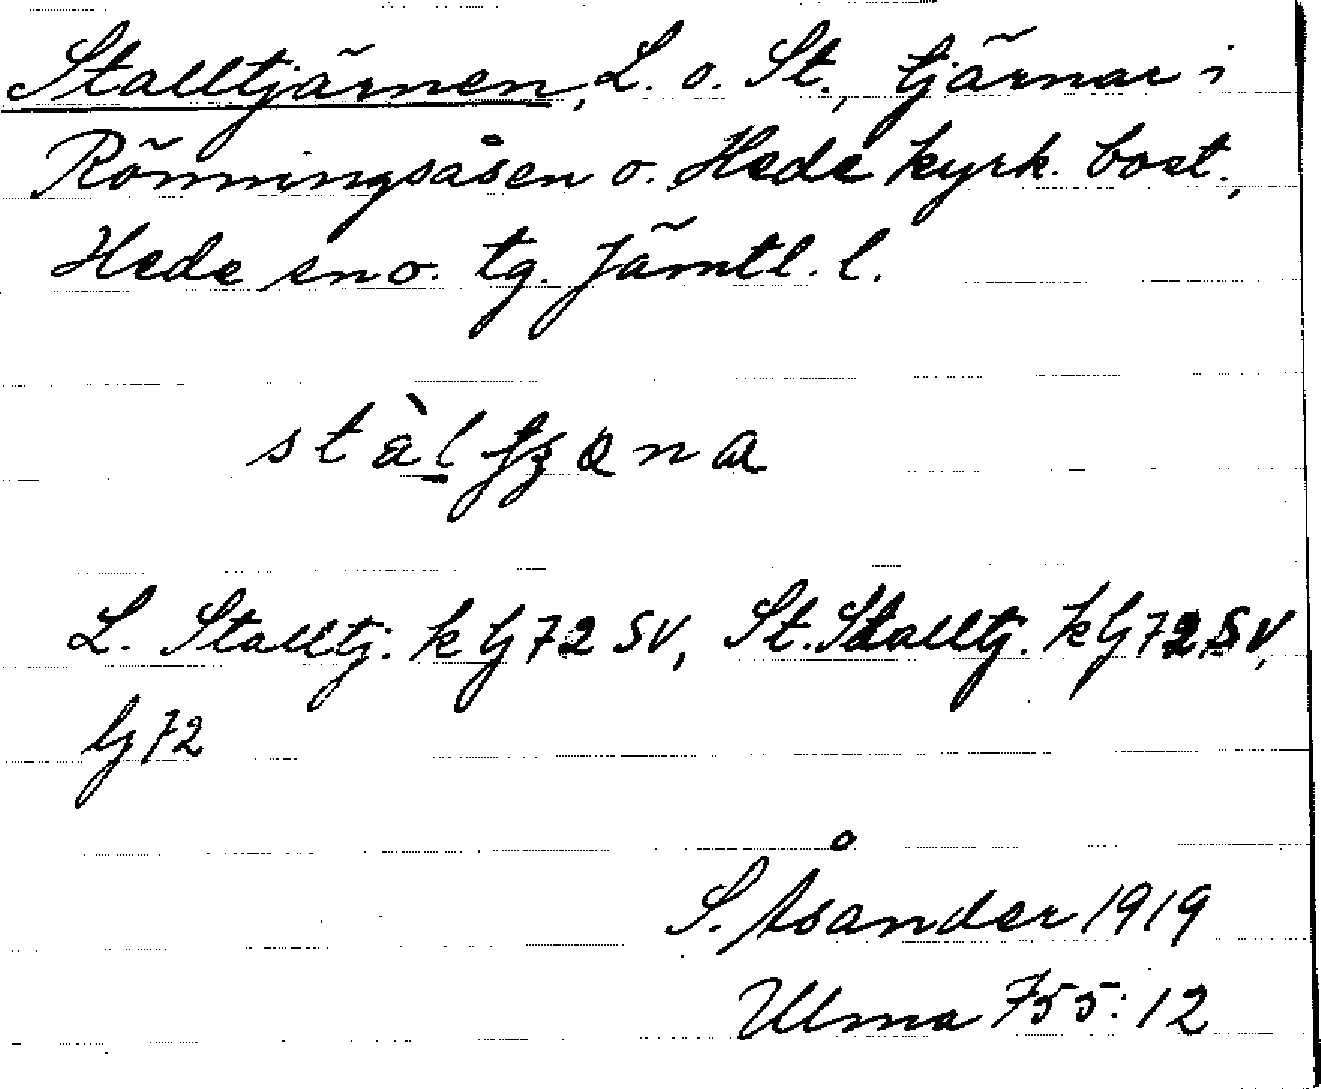 Stalltjärnen, L. o. St., tjärnar i
Rönningsåsen o. Hede kyrk. bost.,
Hede sn o. tg. Jämtl. l.
L. Stalltj. k Gj 72 SV, St. Stalltj. k Gj 72 SV,
Gj 72
S. Åsander 1919
Ulma 755:12